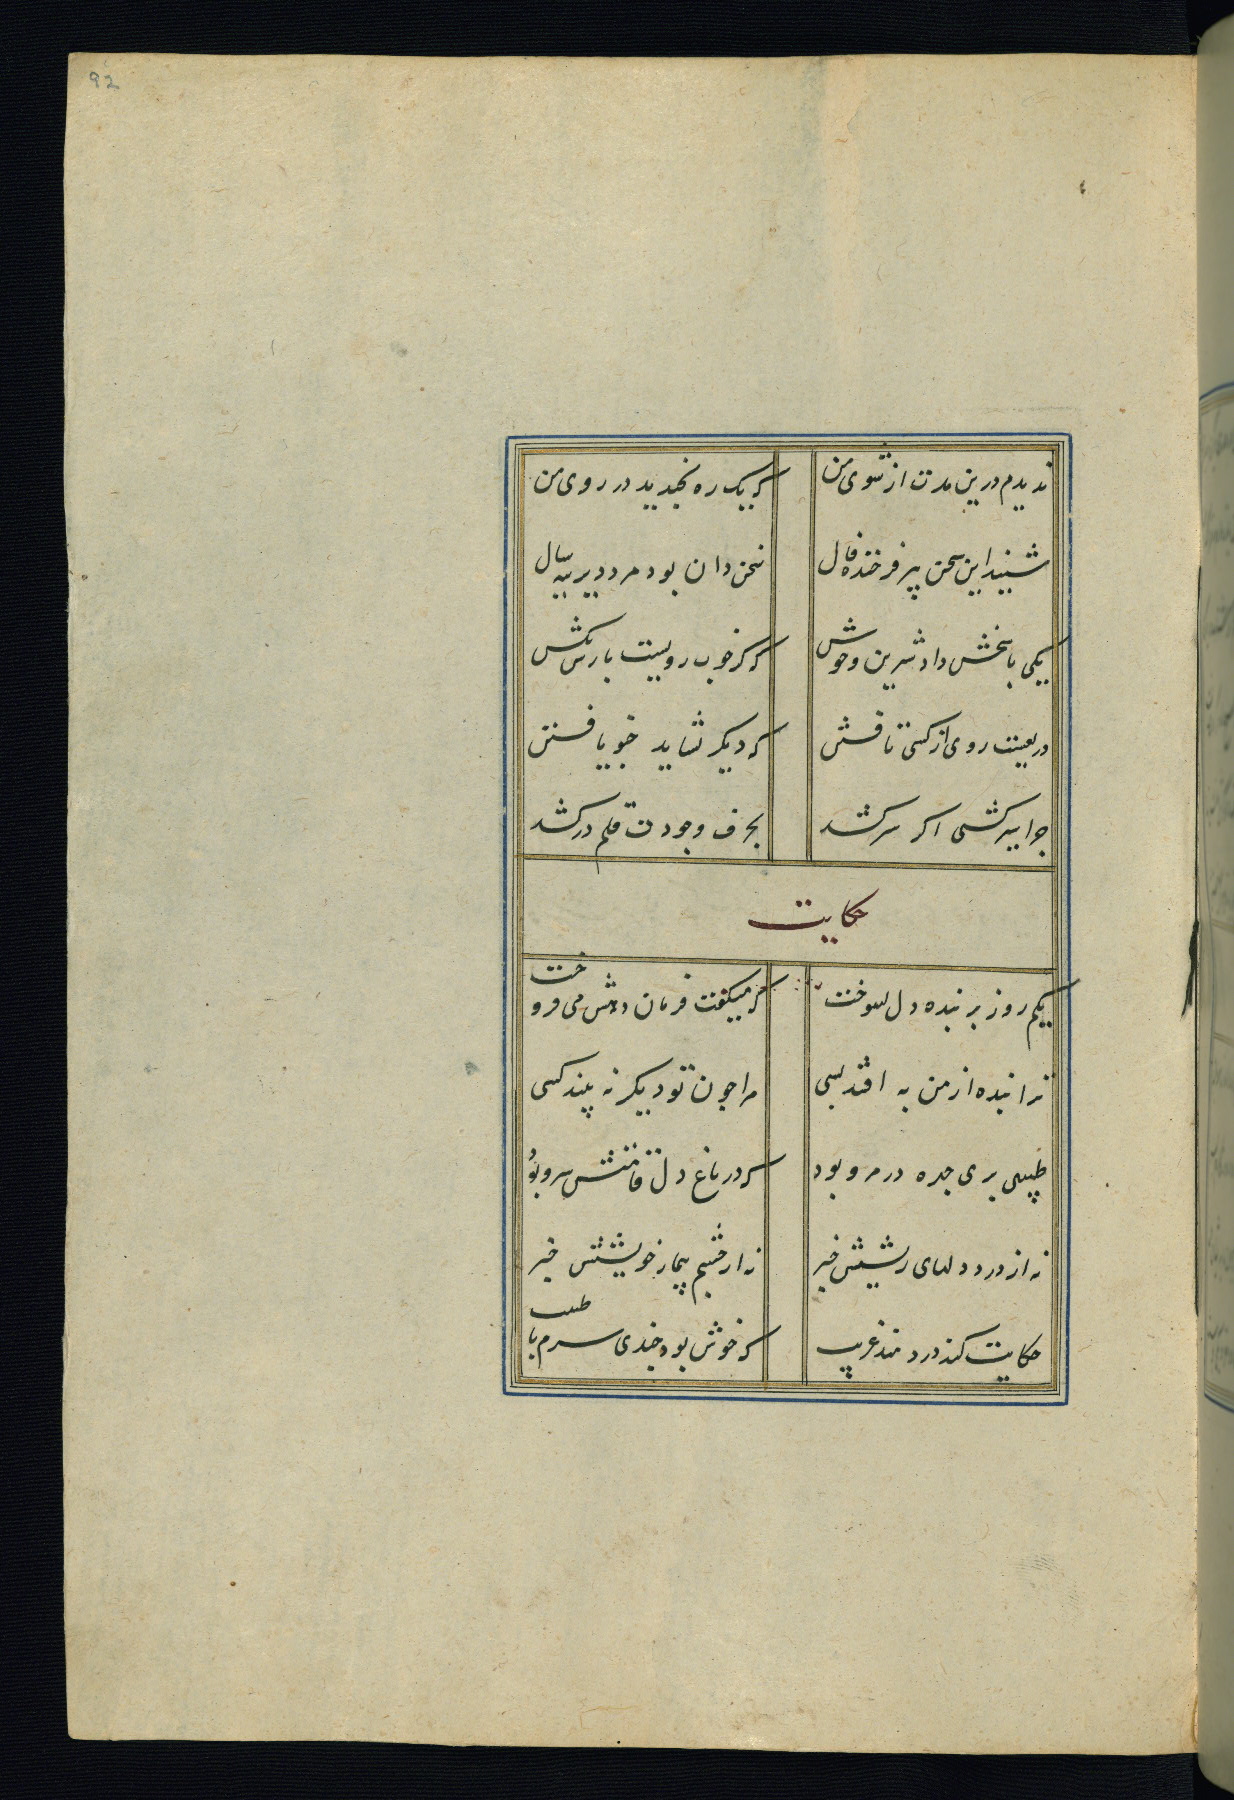 92
ندیدم درین مدت از شوی من که یک ره بخندید در روی من
شنید این سخن پیر فرخنده فال سخن دان بود مرد دیرینه سال
یکی پاسخش داد شیرین و خوش که گر خوب رویست بارش بکش
دریغست روی از کسی تافتن که دیگر نشاید چو یافتن
چرا سرکشی اگر سر کشد بحرف وجودت قلم درکشد
حکایت
یکم روز بر بنده دل بسوخت که میگفت و فرماندهش می فروخت
ترا بنده از من به افتد بسی مرا چون تو دیگر نه بیند کسی
طبیبی پری چهره در مرو بود که در باغ دل قامتش سرو بود
نه از درد دلهای ریشش خبر نه از چشم بیمار خویشش خبر
حکایت کند دردمند غریب که خوش بود چندی سرم با طبیب